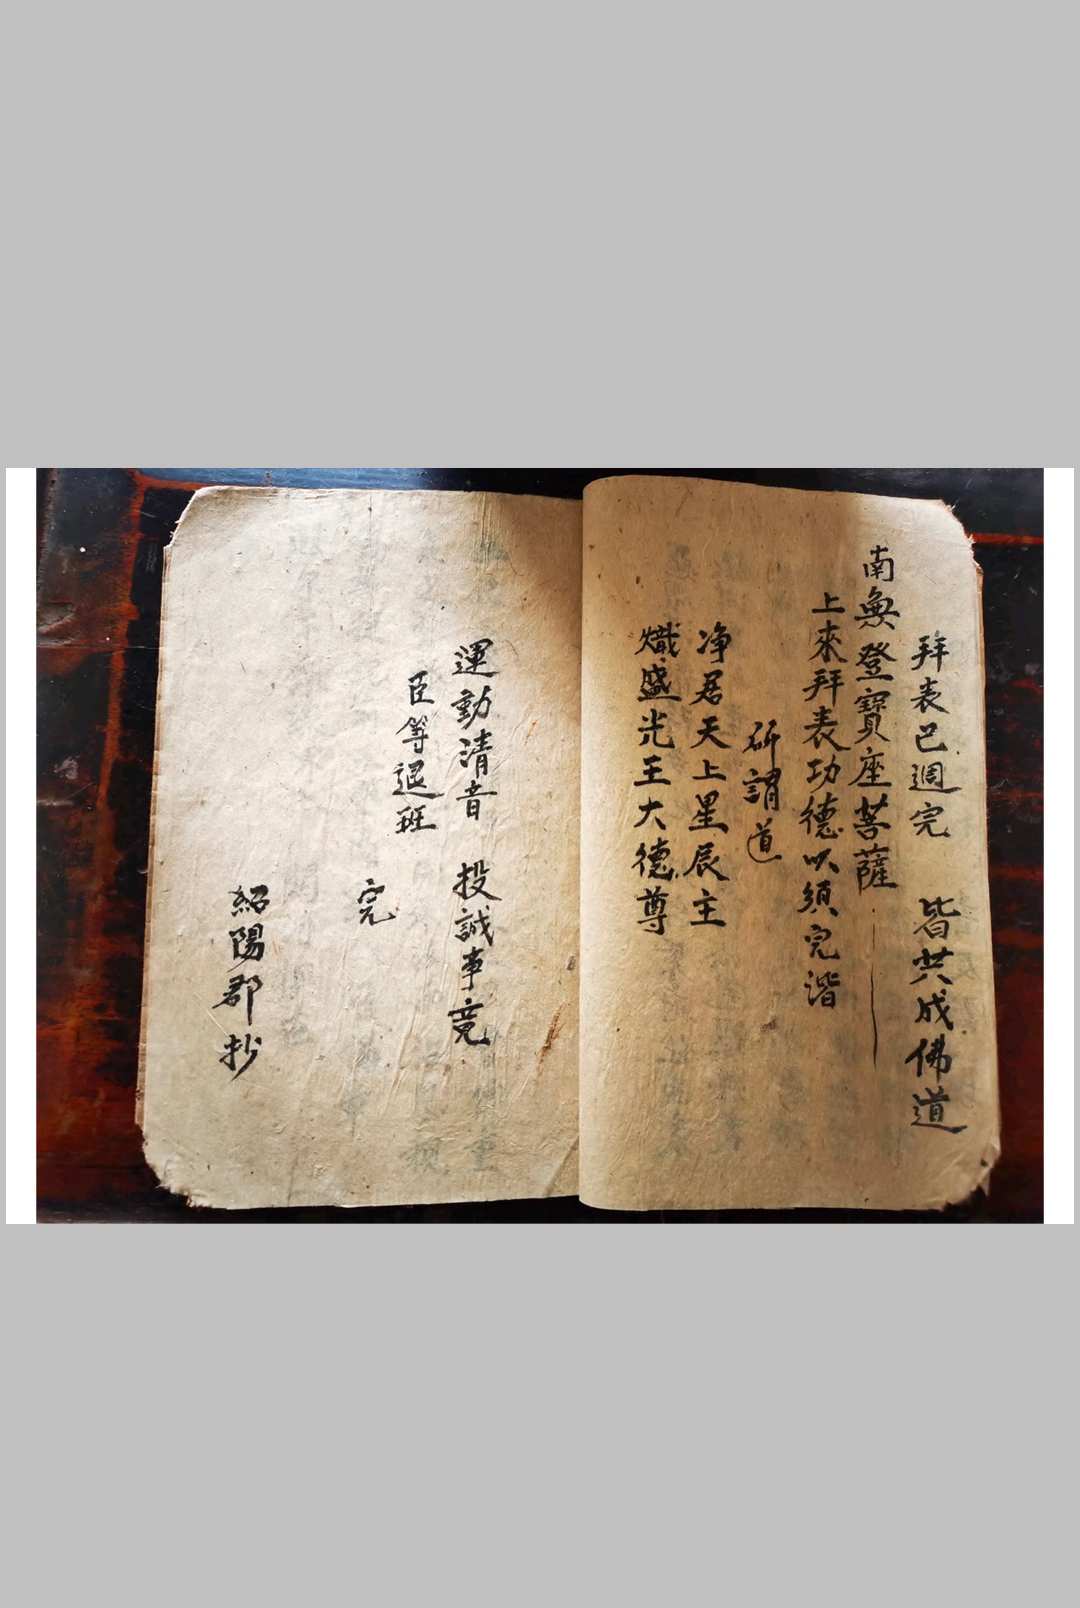 拜表已週完　皆共成佛道
南無登寶座菩薩
上來拜表功德以須完諧
研謂道
净居天上星辰主
熾盛光王大德尊
運動清音　投誠事竟
臣等退班
完
紹陽郡抄